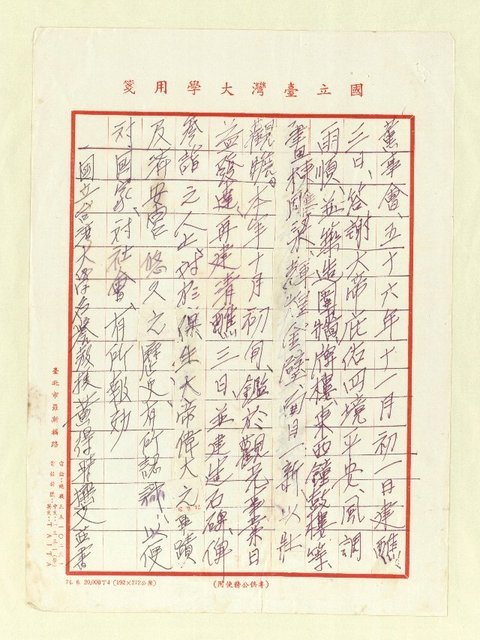 國立臺灣大學用箋
董事會、五十六年十一月初一日建醮
三日、答謝大帝庇佑四境平安、風調
雨順、並築造圍牆牌樓東西鐘鼓樓等
畫棟雕梁、輝煌金璧、面目一新以壯
觀瞻。本年十月初旬、鑑於觀光事業日
益發達、再建清醮三日並建造石碑、俾
參詣之人士對於保生大帝偉大之聖蹟
及濟安宮悠久之歷史有所認識、以便
對國家、對社會、有所報効
國立台灣大學名譽教授黃得時撰文並書
臺北市羅斯福路
74. 6. 20,000 T4 (192×272公厘)
(專供公務使用)